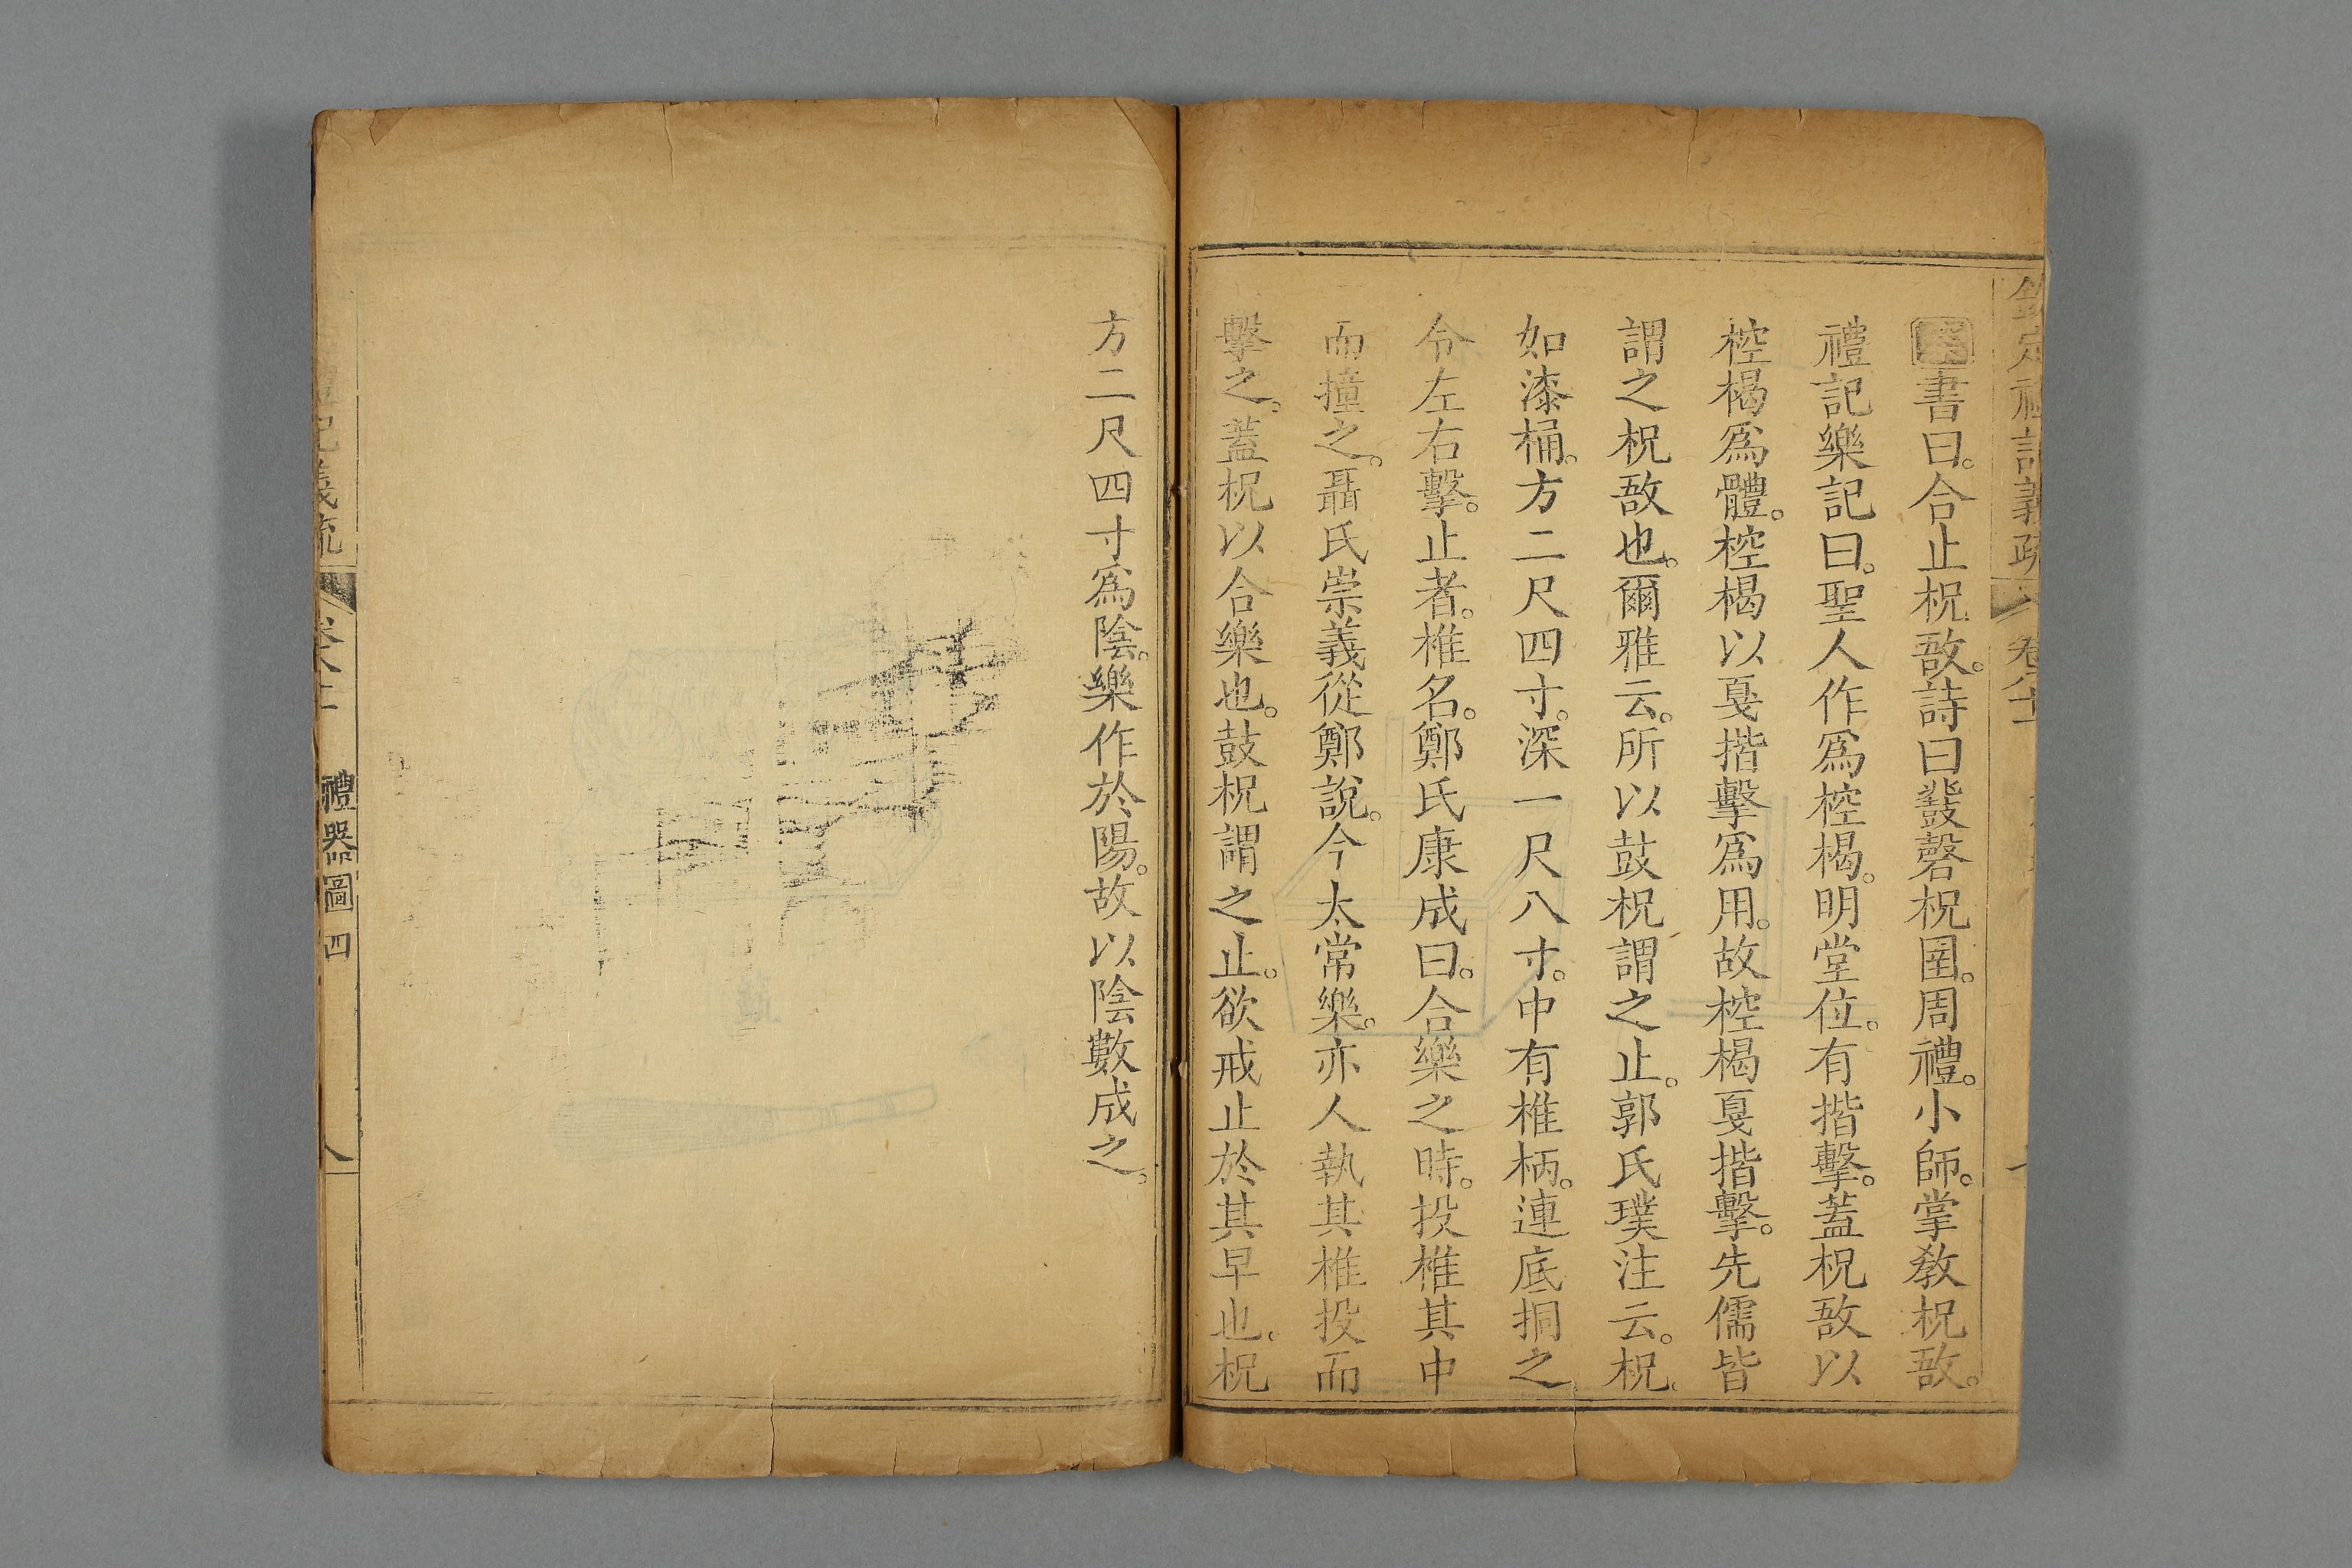 欽定禮記義疏 卷八十一
書曰。合止柷敔。詩曰鼗磬柷圉。周禮。小師。掌敎柷敔。
禮記樂記曰。聖人作爲椌楬。明堂位。有揩擊。蓋柷敔以
椌楬爲體。椌楬以戛揩擊爲用。故椌楬戛揩擊。先儒皆
謂之柷敔也。爾雅云。所以鼓柷謂之止。郭氏璞注云。柷
如漆桶。方二尺四寸。深一尺八寸。中有椎柄。連底挏之
令左右擊。止者。椎名。鄭氏康成曰。合樂之時。投椎其中
而撞之。聶氏崇義從鄭說。今太常樂。亦人執其椎投而
擊之。蓋柷以合樂也。鼓柷謂之止。欲戒止於其早也。柷
方二尺四寸爲陰。樂作於陽。故以陰數成之。
禮記義疏 卷八十一 禮器圖 四 八